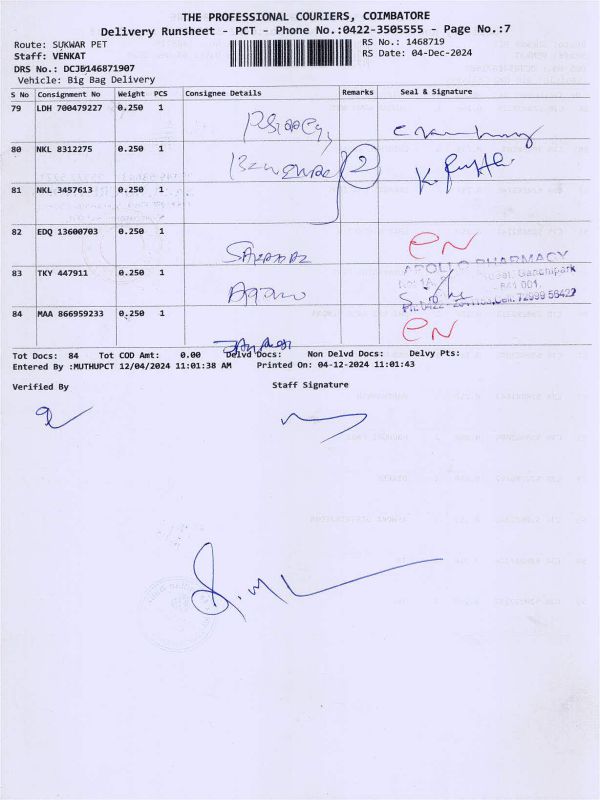 THE PROFESSIONAL COURIERS, COIMBATORE
Delivery Runsheet - PCT - Phone No.:0422-3505555 - Page No.:7
Route: SUKWAR PET
RS No.: 1468719
Staff: VENKAT
RS Date: 04-Dec-2024
DRS No.: DCJB146871907
Vehicle: Big Bag Delivery
S No Consignment No Weight PCS Consignee Details Remarks Seal & Signature
79 LDH 700479227 0.250 1
80 NKL 8312275 0.250 1 2
81 NKL 3457613 0.250 1
82 EDQ 13600703 0.250 1
83 TKY 447911 0.250 1
APOLLO PHARMACY
84 MAA 866959233 0.250 1
Tot Docs: 84 Tot COD Amt: 0.00 Delvd Docs: Non Delvd Docs: Delvy Pts:
Entered By :MUTHUPCT 12/04/2024 11:01:38 AM Printed On: 04-12-2024 11:01:43
Verified By Staff Signature